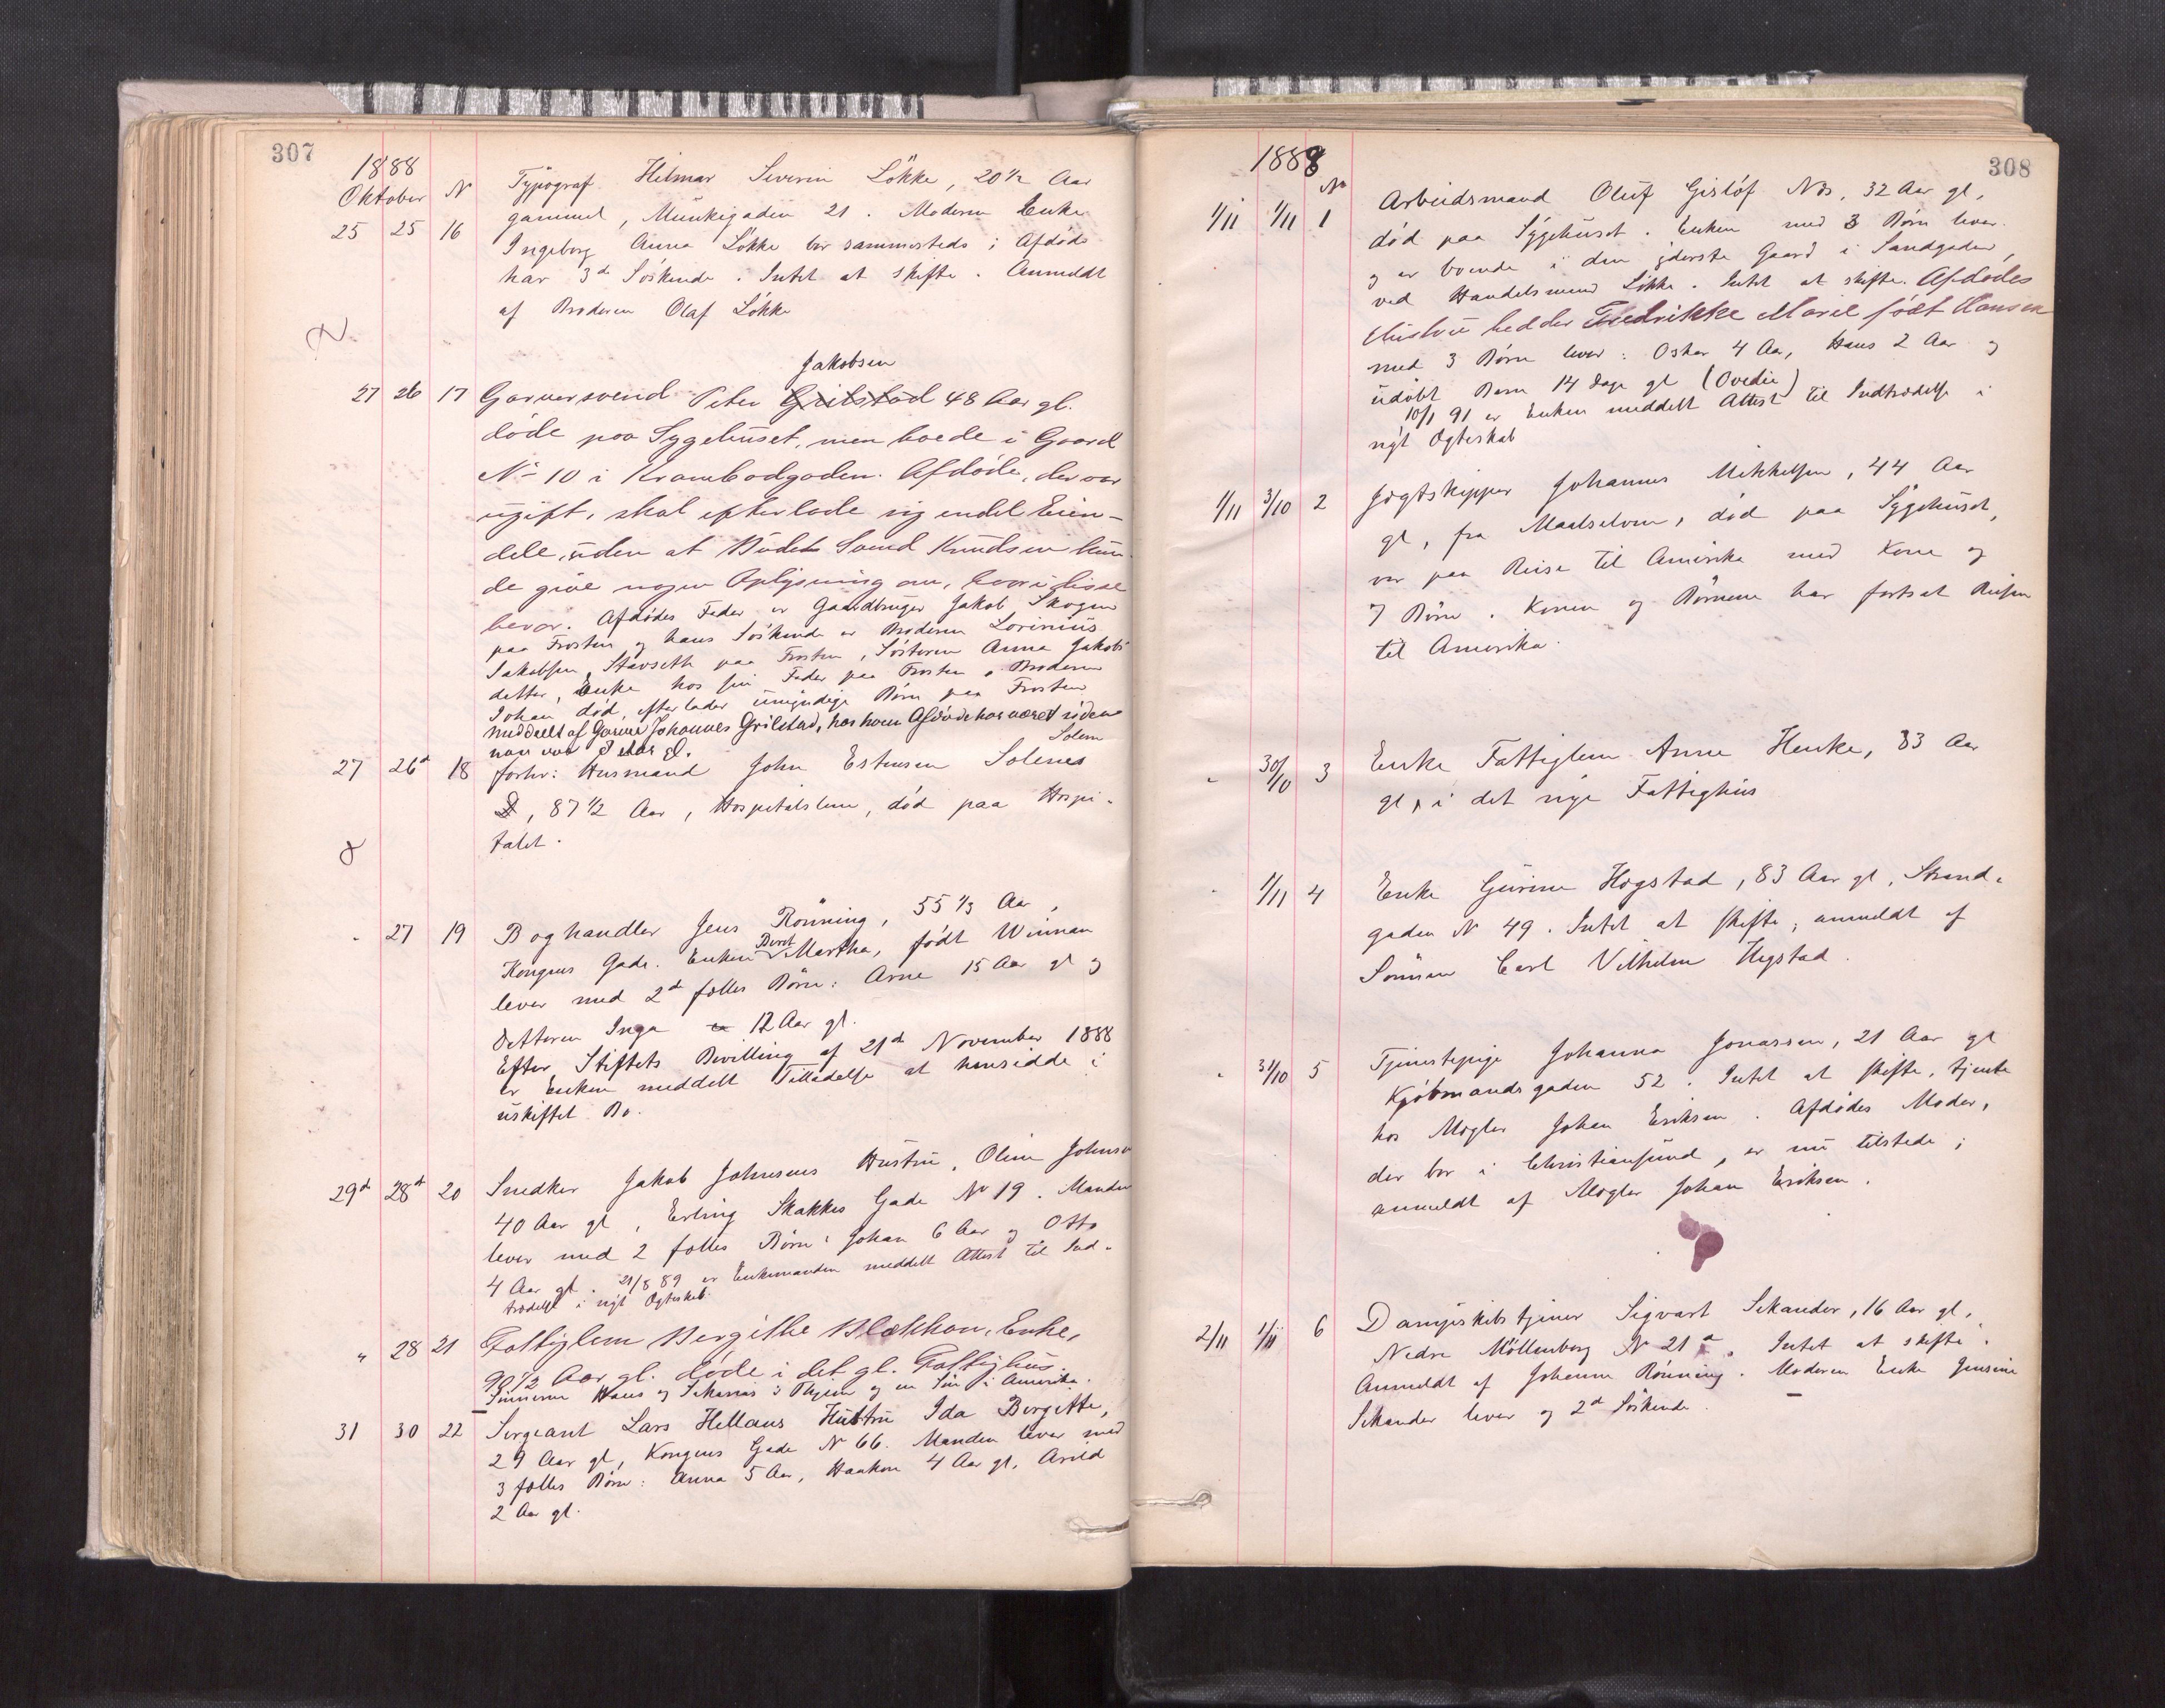 307
1888
Oktober N
Typograf Hilmar Severin Lökke, 20 1/2 Aar
25 25 16 gammel, Munkegaden 21. Moderen Enke
Ingeborg Anna Lökke bor sammesteds; Afdöde
har 3de Söskende. Intet at skifte. Anmeldt
af Broderen Olaf Lökke
Jakobsen
27 26 17 Garversvend Peter Grilstad 48 Aar gl.
döde paa Sygehuset, men boede i Gaard
No 10 i Krambodgaden. Afdöde, der var
ugift, skal efterlade sig endel Eien-
dele, uden at Budet Svend Knudsen kun-
de give nogen Oplysning om, hvori disse
bevar. Afdödes Fader er Gaardbruger Jakob Skogen
paa Frosten og hans Söskende er Broderen Lorinius
Jakobsen Stavseth paa Frosten, Söstern Anna Jakobs
datter, Enke hos sin Fader paa Frosten, Broderen
Johan död, efterlader umyndige Börn paa Frosten
meddeelt af Garver Johannes Grilstad, hos hvem Afdöde har været siden
han var 8 Aar gl.
Solem
27 26d 18 forhv: Husmand John Estensen Solenes
87 1/2 Aar, Hospitalslem, död paa Hospi-
talet.
27 19 Boghandler Jens Rönning, 55 1/3 Aar,
Kongens Gade. Enken Beret Martha, födt Winnan
lever med 2de fælles Börn: Arne 15 Aar gl og
Datteren Inga 12 Aar gl.
Efter Stiftets Bevilling af 21de November 1888
er Enken meddelt Tilladelse at hensidde i
uskiftet Bo.
29d 28d 20 Snedker Jakob Johnsens Hustru, Oline Johnsen
40 Aar gl, Erling Skakkes Gade No 19. Manden
lever med 2 fælles Börn: Johan 6 Aar og Otto
4 Aar gl. 21/8 89 er Enkemanden meddelt Attest til Ind-
trædelse i nyt Ægteskab.
" 28 21 Fattiglem Bergithe Blækkan, Enke,
90 1/2 Aar gl. döde i det gl. Fattighus.
Sönnerne Hans og Johannes i Thjem og en Sön i Amerika.
31 30 22 Sergeant Lars Hellans Hustru Ida Bergitte,
29 Aar gl, Kongens Gade No 66. Manden lever med
3 fælles Börn: Anna 5 Aar, Haakon 4 Aar gl, Arild
2 Aar gl.
308
1888
No
1/11 1/11 1 Arbeidsmand Oluf Gislöf No, 32 Aar gl,
död paa Sygehuset. Enken med 3 Börn lever
og er boende i den yderste Gaard i Sandgaden,
ved Handelsmand Lökke. Intet at skifte. Afdödes
Hustru hedder Fredrikke Marie födt Hansen
med 3 Börn lever: Oskar 4 Aar, Hans 2 Aar og
udöbt Barn 14 Dage gl (Ovedie)
10/1 91 er Enken meddelt Attest til Indtrædelse i
nyt Ægteskab
1/11 3/10 2 Jægtskipper Johannes Mikkelsen, 44 Aar
gl, fra Maalselven, död paa Sygehuset,
var paa Reise til Amerika med Kone og
7 Börn. Konen og Börnene har fortsat Reisen
til Amerika.
" 30/10 3 Enke Fattiglem Anne Henke, 83 Aar
gl, i det nye Fattighus
" 1/11 4 Enke Gurine Hogstad, 83 Aar gl, Strand-
gaden No 49. Intet at skifte, anmeldt af
Sönnen Carl Vilhelm Hegstad.
" 31/10 5 Tjenestepige Johanna Jonassen, 21 Aar gl
Kjöbmandsgaden 52. Intet at skifte, tjente
hos Mægler Johan Eriksen. Afdödes Moder,
der bor i Christiansund, er nu tilstede;
anmeldt af Mægler Johan Eriksen.
2/11 1/11 6 Dampskibstjener Sigvart Sekander, 16 Aar gl,
Nedre Möllenberg No 21 a. Intet at skifte.
Anmeldt af Johanne Rönning. Moderen Enke Jensine
Sekander lever og 2de Söskende.